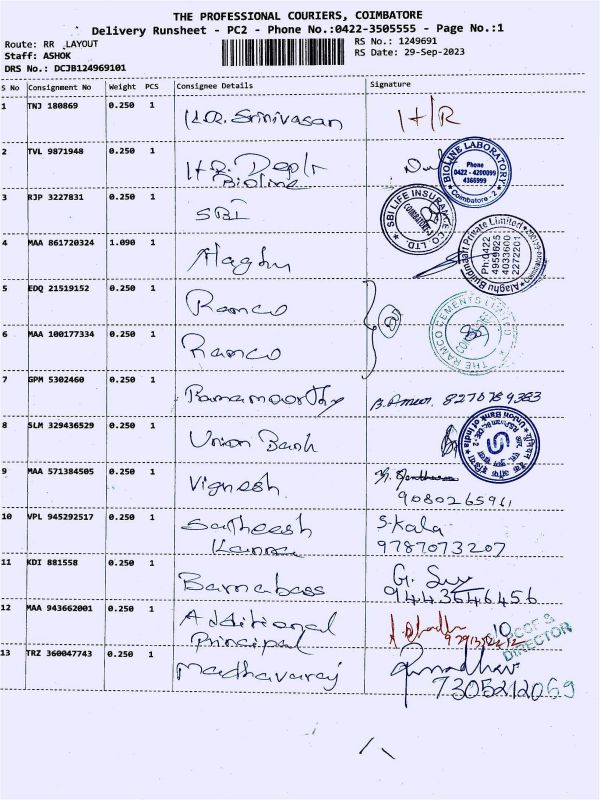 THE PROFESSIONAL COURIERS, COIMBATORE
Delivery Runsheet - PC2 - Phone No.:0422-3505555 - Page No.:1
Route: RR LAYOUT RS No.: 1249691
Staff: ASHOK RS Date: 29-Sep-2023
DRS No.: DCJB124969101
S No Consignment No Weight PCS Consignee Details Signature
1 TNJ 180869 0.250 1 Srinivasan H/R
2 TVL 9871948 0.250 1 H.R. Deptr
Bioline
BIOLINE LABORATORY
Phone
0422 - 4200099
4366999
Coimbatore - 2
3 RJP 3227831 0.250 1 SBI
SBI LIFE INSURANCE CO. LTD.
4 MAA 861720324 1.090 1 Alaghu
Alaghu Buildmaart Private Limited
Ph:0422
4959625
4033600
2272201
5 EDQ 21519152 0.250 1 Ramco
6 MAA 100177334 0.250 1 Ramco
THE RAMCO CEMENTS LIMITED
7 GPM 5302460 0.250 1 Ramamoorthy 8270789383
8 SLM 329436529 0.250 1 Union Bank
Union Bank of India
9 MAA 571384505 0.250 1 Vignesh
9080265961
10 VPL 945292517 0.250 1 Satheesh S. Kala
Kanna 9787073207
11 KDI 881558 0.250 1 Barnabass G.
9443646456
12 MAA 943662001 0.250 1 Additional
Principal
DIRECTOR
13 TRZ 360047743 0.250 1 Madhavaraj
7305212069